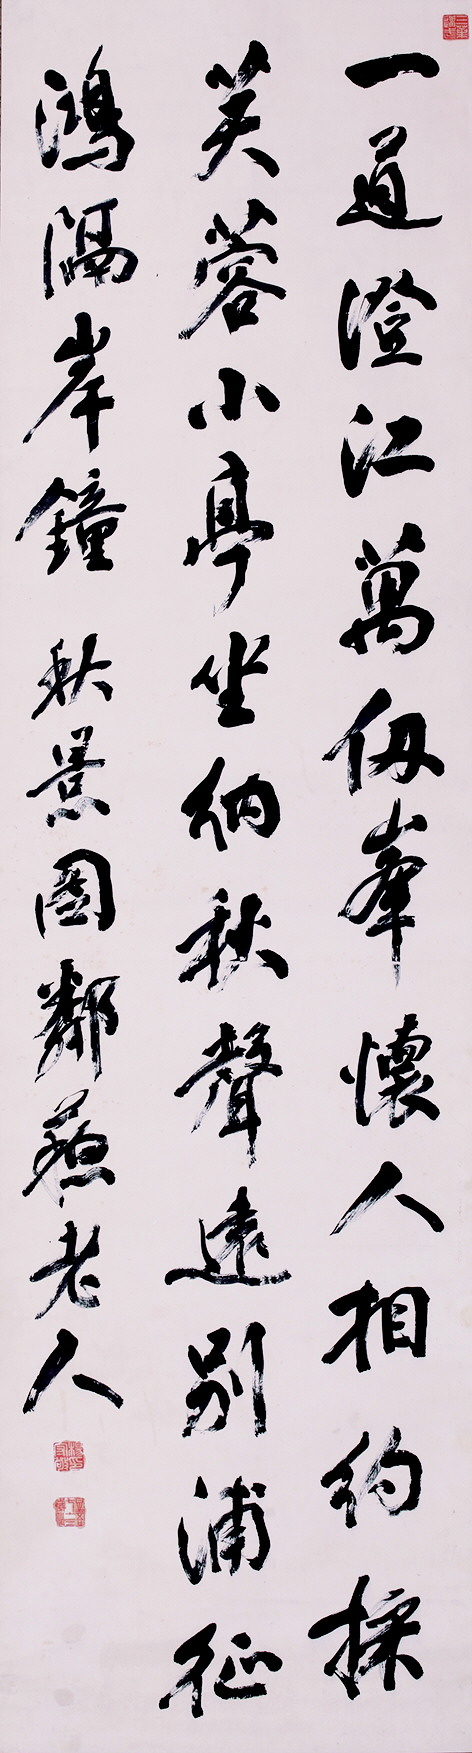 一道澄江萬仭峯懷人相約採
芙蓉小亭坐納秋聲遠別浦征
鴻隔岸鐘 秋景圖鄰蘇老人